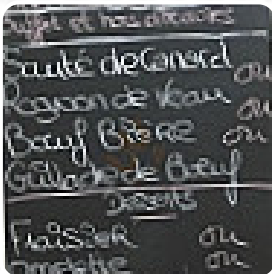 Buffet et nos
Sauté de Canard ou
Rognon de Veau ou
Bœuf Bière ou
Grillade de Bœuf
Desserts
Fraisier ou
Omelette ou